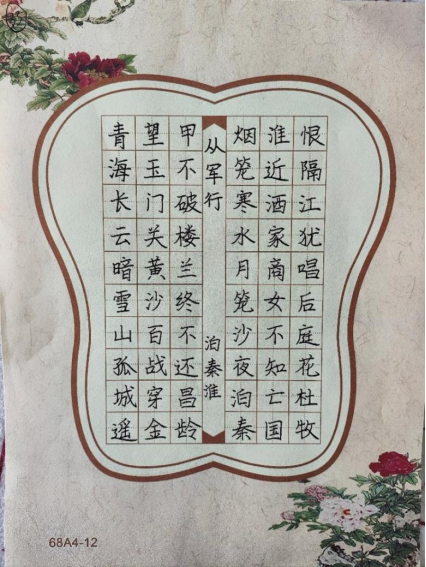 青海长云暗雪山孤城遥
望玉门关黄沙百战穿金
甲不破楼兰终不还昌龄
从军行
泊秦淮
烟笼寒水月笼沙夜泊秦
淮近酒家商女不知亡国
恨隔江犹唱后庭花杜牧
68A4-12